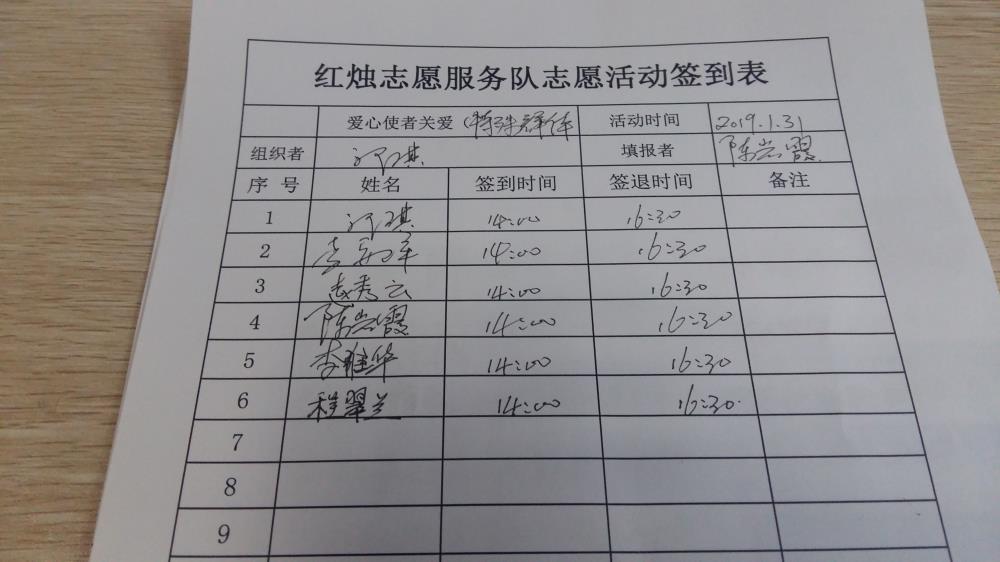 红烛志愿服务队志愿活动签到表
爱心使者关爱（特殊群体 活动时间 2019.1.31
组织者 填报者 陈岩霞
序号 姓名 签到时间 签退时间 备注
1 14:00 16:30
2 14:00 16:30
3 赵秀云 14:00 16:30
4 陈岩霞 14:00 16:30
5 李雅华 14:00 16:30
6 程翠兰 14:00 16:30
7
8
9